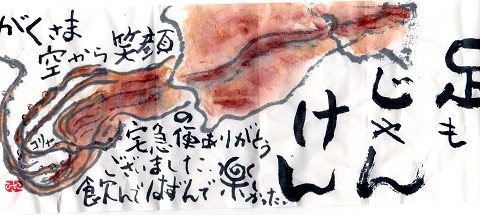 足も
じゃん
けん
がくさま
空から笑顔
の
宅急便ありがとう
ございました..
飲んではずんで楽しかった..
ゴリャ